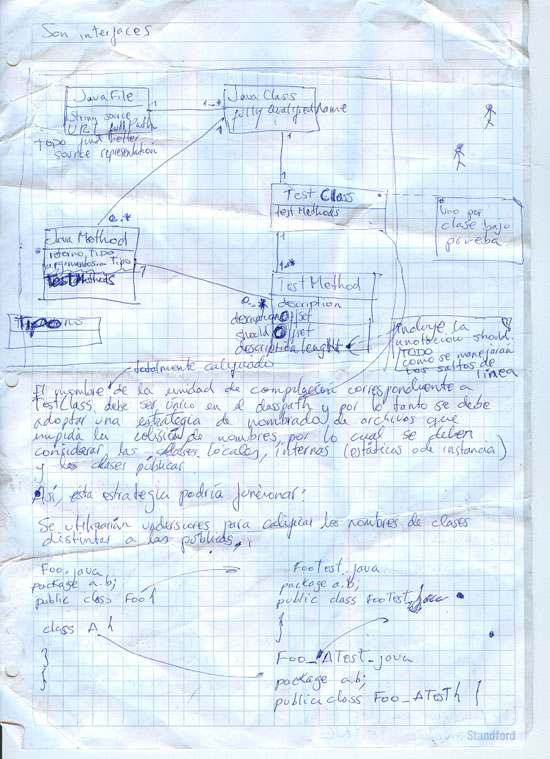 Son interfaces
JavaFile
String source
URI fullPath
TODO find better
source representation
1
1..*
Java Class
fully Qualified Name
1
1
Test Class
test Methods
uno por
clase bajo
prueba
0..*
Java Method
retorno, Tipo
argumentos.. Tipo
Test Methods
1
1
1..*
Test Method
0..*
description
description Offset
should Offset
description lenght
incluye la
annotacion should.
TODO
como se manejaran
los saltos de
linea
Tipo
totalmente calificado
El nombre de la unidad de compilación correspondiente a
TestClass, debe ser único en el classpath y por lo tanto se debe
adoptar una estrategia de nombrado de archivos que
impida la colisión de nombres, por lo cual se deben
considerar las clases locales, internas (estáticas o de instancia)
y las clases públicas.
Así, esta estrategia podría funcionar:
Se utilizarían underscores para calificar los nombres de clases
distintas a las públicas.
Foo.java
package a.b;
public class Foo {
class A {
}
}
}
FooTest.java
package a.b;
public class FooTest
{
}
Foo_ATest.java
package a.b;
public class Foo_ATest {
Standford